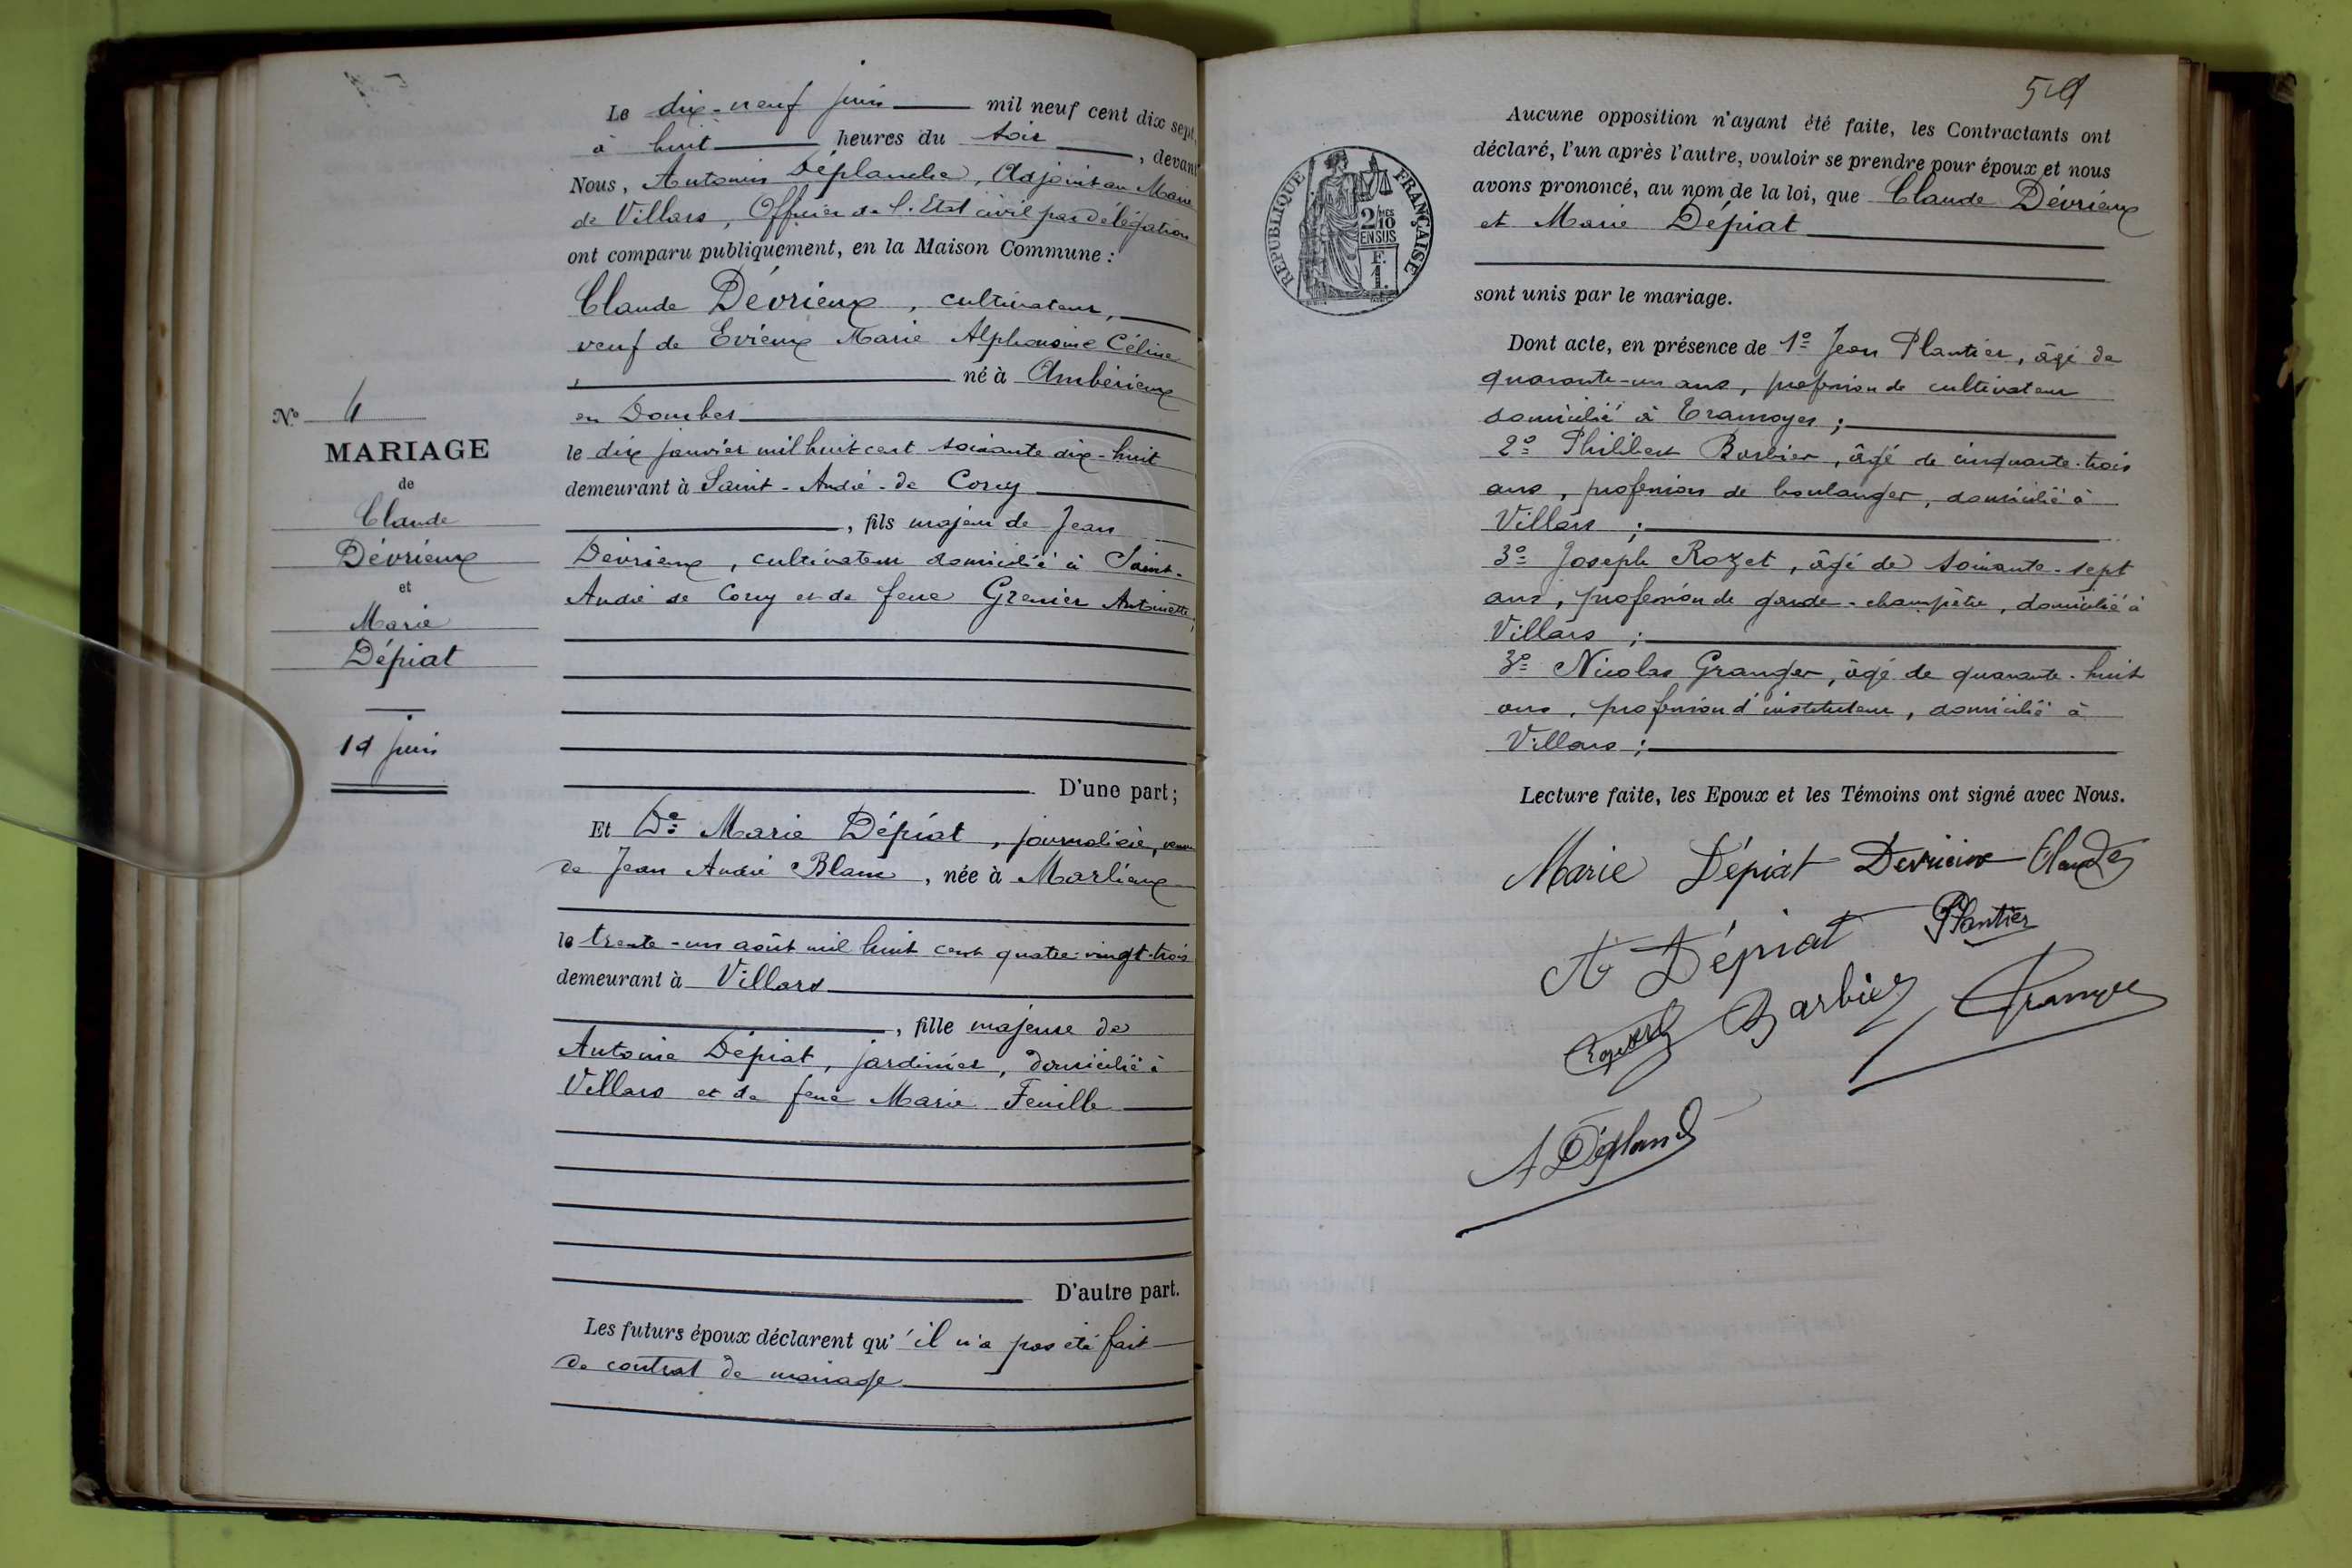 N° 4
MARIAGE
de
Claude
Dévrieux
et
Marie
Dépiat
19 juin
Le dix-neuf juin mil neuf cent dix sept,
à huit heures du soir, devant
Nous, Antonin Déplanche, Adjoint au Maire
de Villars, Officier de l'Etat civil par délégation
ont comparu publiquement, en la Maison Commune :
Claude Dévrieux, cultivateur,
veuf de Evieux Marie Alphonsine Céline
, né à Ambérieux
en Dombes
le dix janvier mil huit cent soixante dix-huit
demeurant à Saint-André-de Corcy
, fils majeur de Jean
Dévrieux, cultivateur domicilié à Saint-
André de Corcy et de feue Grenier Antoinette,
D'une part ;
Et De Marie Dépiat, journalière, veuve
de Jean André Blanc, née à Marlieux
le trente-un août mil huit cent quatre-vingt-trois
demeurant à Villars
, fille majeure de
Antoine Dépiat, jardinier, domicilié à
Villars et de feue Marie Feuille
D'autre part.
Les futurs époux déclarent qu'il n'a pas été fait
de contrat de mariage
RÉPUBLIQUE FRANÇAISE
2/10
EN SUS
F.
1.
Aucune opposition n'ayant été faite, les Contractants ont
déclaré, l'un après l'autre, vouloir se prendre pour époux et nous
avons prononcé, au nom de la loi, que Claude Dévrieux
et Marie Dépiat
sont unis par le mariage.
Dont acte, en présence de 1° Jean Plantier, âgé de
quarante-un ans, profession de cultivateur
domicilié à Tramoyes ;
2° Philibert Barbier, âgé de cinquante-trois
ans, profession de boulanger, domicilié à
Villars ;
3° Joseph Rozet, âgé de soixante-sept
ans, profession de garde-champêtre, domicilié à
Villars ;
3° Nicolas Granger, âgé de quarante-huit
ans, profession d'instituteur, domicilié à
Villars ;
Lecture faite, les Epoux et les Témoins ont signé avec Nous.
Marie Dépiat Devrieux Claude
A Dépiat Plantier
Barbier Granger
A Déplanche